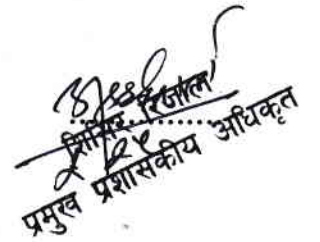 शिशिर रिजाल
प्रमुख प्रशासकीय अधिकृत